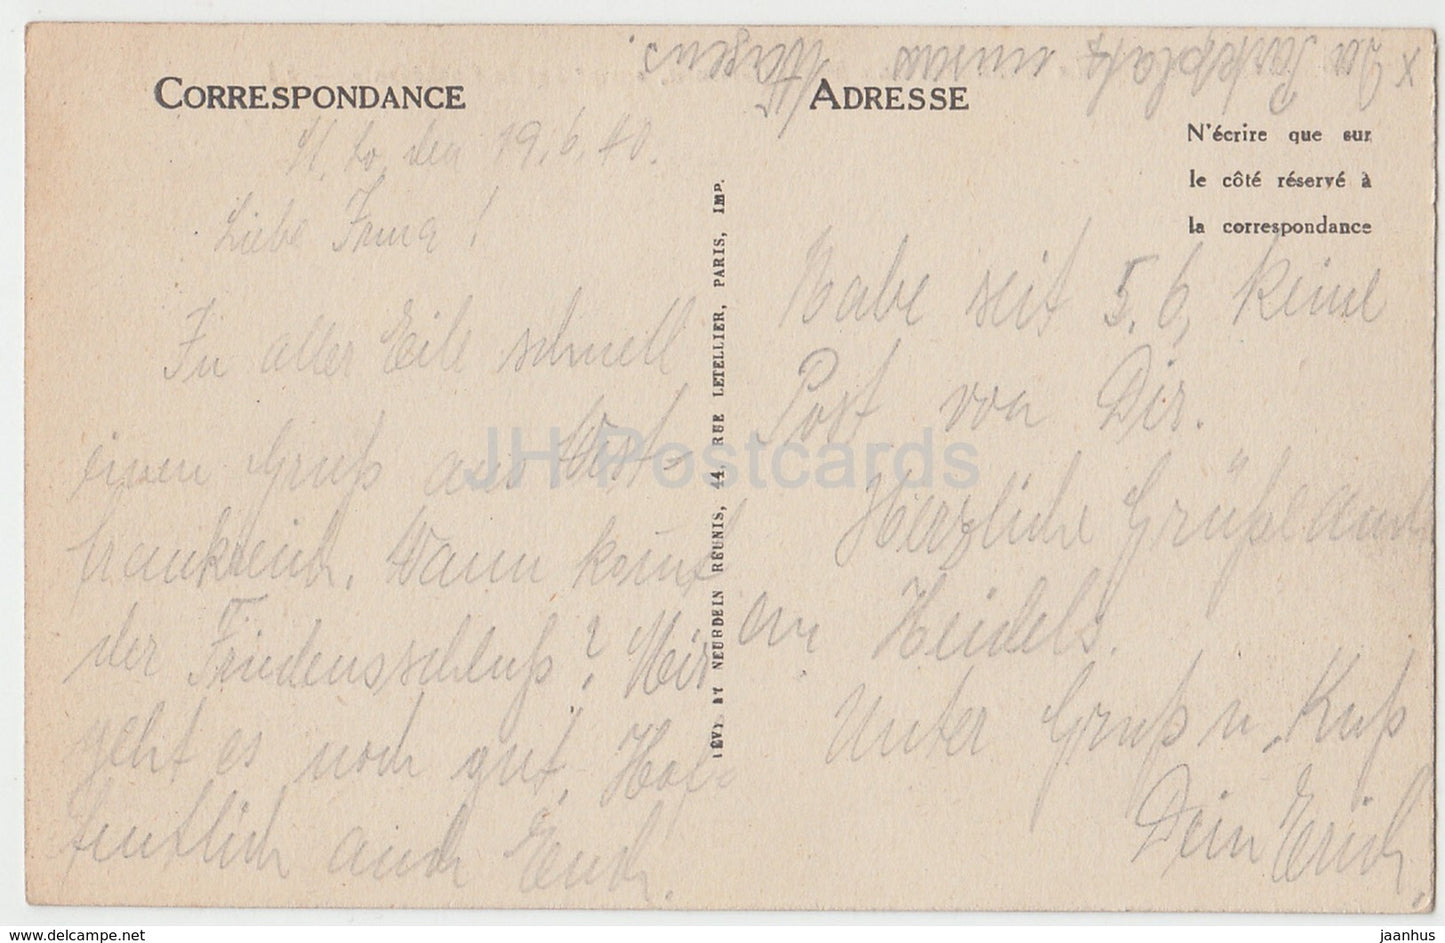 x Der Parkplatz unseres
Wagens.
CORRESPONDANCE
ADRESSE
N'écrire que sur
le côté réservé à
la correspondance
den 19.6.40.
Liebe Irma!
In aller Eile schnell
einen Gruß aus West-
frankreich. Wann kommt
der Friedensschluß? Mir
geht es noch gut. Hof-
fentlich auch Euch.
LÉVY ET NEURDEIN RÉUNIS, 44, RUE LETELLIER, PARIS, IMP.
Habe seit 5.6. keine
Post von Dir.
Herzliche Grüße auch
an Heidels.
Unter Gruß u. Kuß
Dein Erich.
JH Postcards
www.delcampe.net
jaanhus